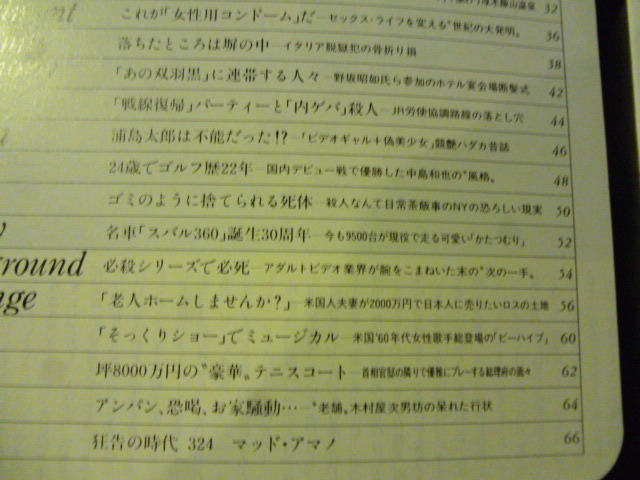 厚木飯山温泉 32
これが「女性用コンドーム」だ—セックス・ライフを変える〝世紀の大発明〟 36
落ちたところは塀の中—イタリア脱獄犯の骨折り損 38
「あの双羽黒」に連帯する人々—野坂昭如氏ら参加のホテル宴会場断髪式 42
「戦線復帰」パーティーと「内ゲバ」殺人—JR労使協調路線の落とし穴 44
浦島太郎は不能だった!?—「ビデオギャル+偽美少女」競艶ハダカ昔話 46
24歳でゴルフ歴22年—国内デビュー戦で優勝した中島和也の〝風格〟 48
ゴミのように捨てられる死体—殺人なんて日常茶飯事のNYの恐ろしい現実 50
名車「スバル360」誕生30周年—今も9500台が現役で走る可愛い「かたつむり」 52
round 必殺シリーズで必死—アダルトビデオ業界が腕をこまねいた末の〝次の一手〟 54
nge 「老人ホームしませんか?」—米国人夫妻が2000万円で日本人に売りたいロスの土地 56
「そっくりショー」でミュージカル—米国'60年代女性歌手総登場の「ビーハイブ」 60
坪8000万円の〝豪華〟テニスコート—首相官邸の隣りで優雅にプレーする総理府の面々 62
アンパン、恐喝、お家騒動…—〝老舗〟木村屋次男坊の呆れた行状 64
狂告の時代 324 マッド・アマノ 66